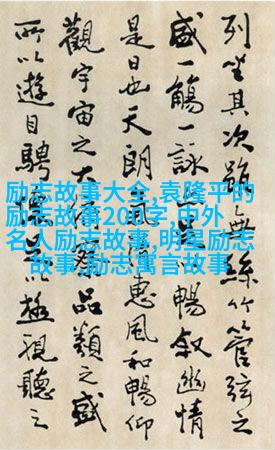 列坐其次雖無絲竹管弦之
盛一觴一詠暢叙幽情
是日也天朗惠風和暢仰
觀宇宙之大察品類之盛
所以遊目騁以極視聽之
励志故事大全,袁隆平的
励志故事200字,中外
名人励志故事,明星励志
故事,励志寓言故事